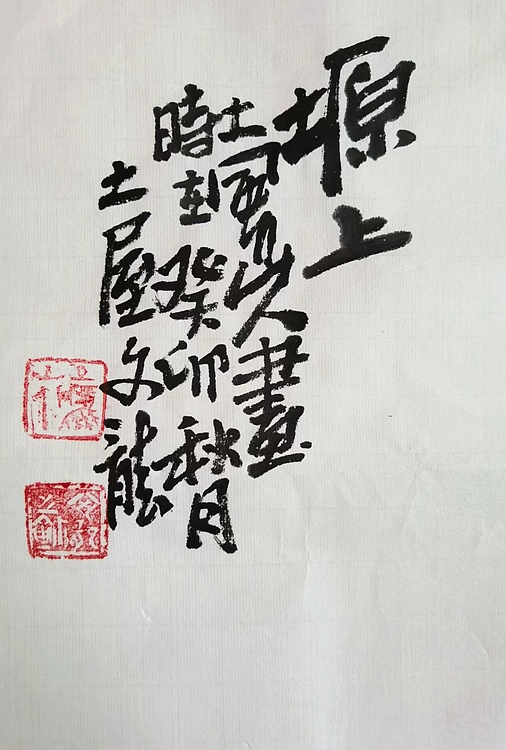 塬上
土人畫
時在癸卯秋月
土屋文龍